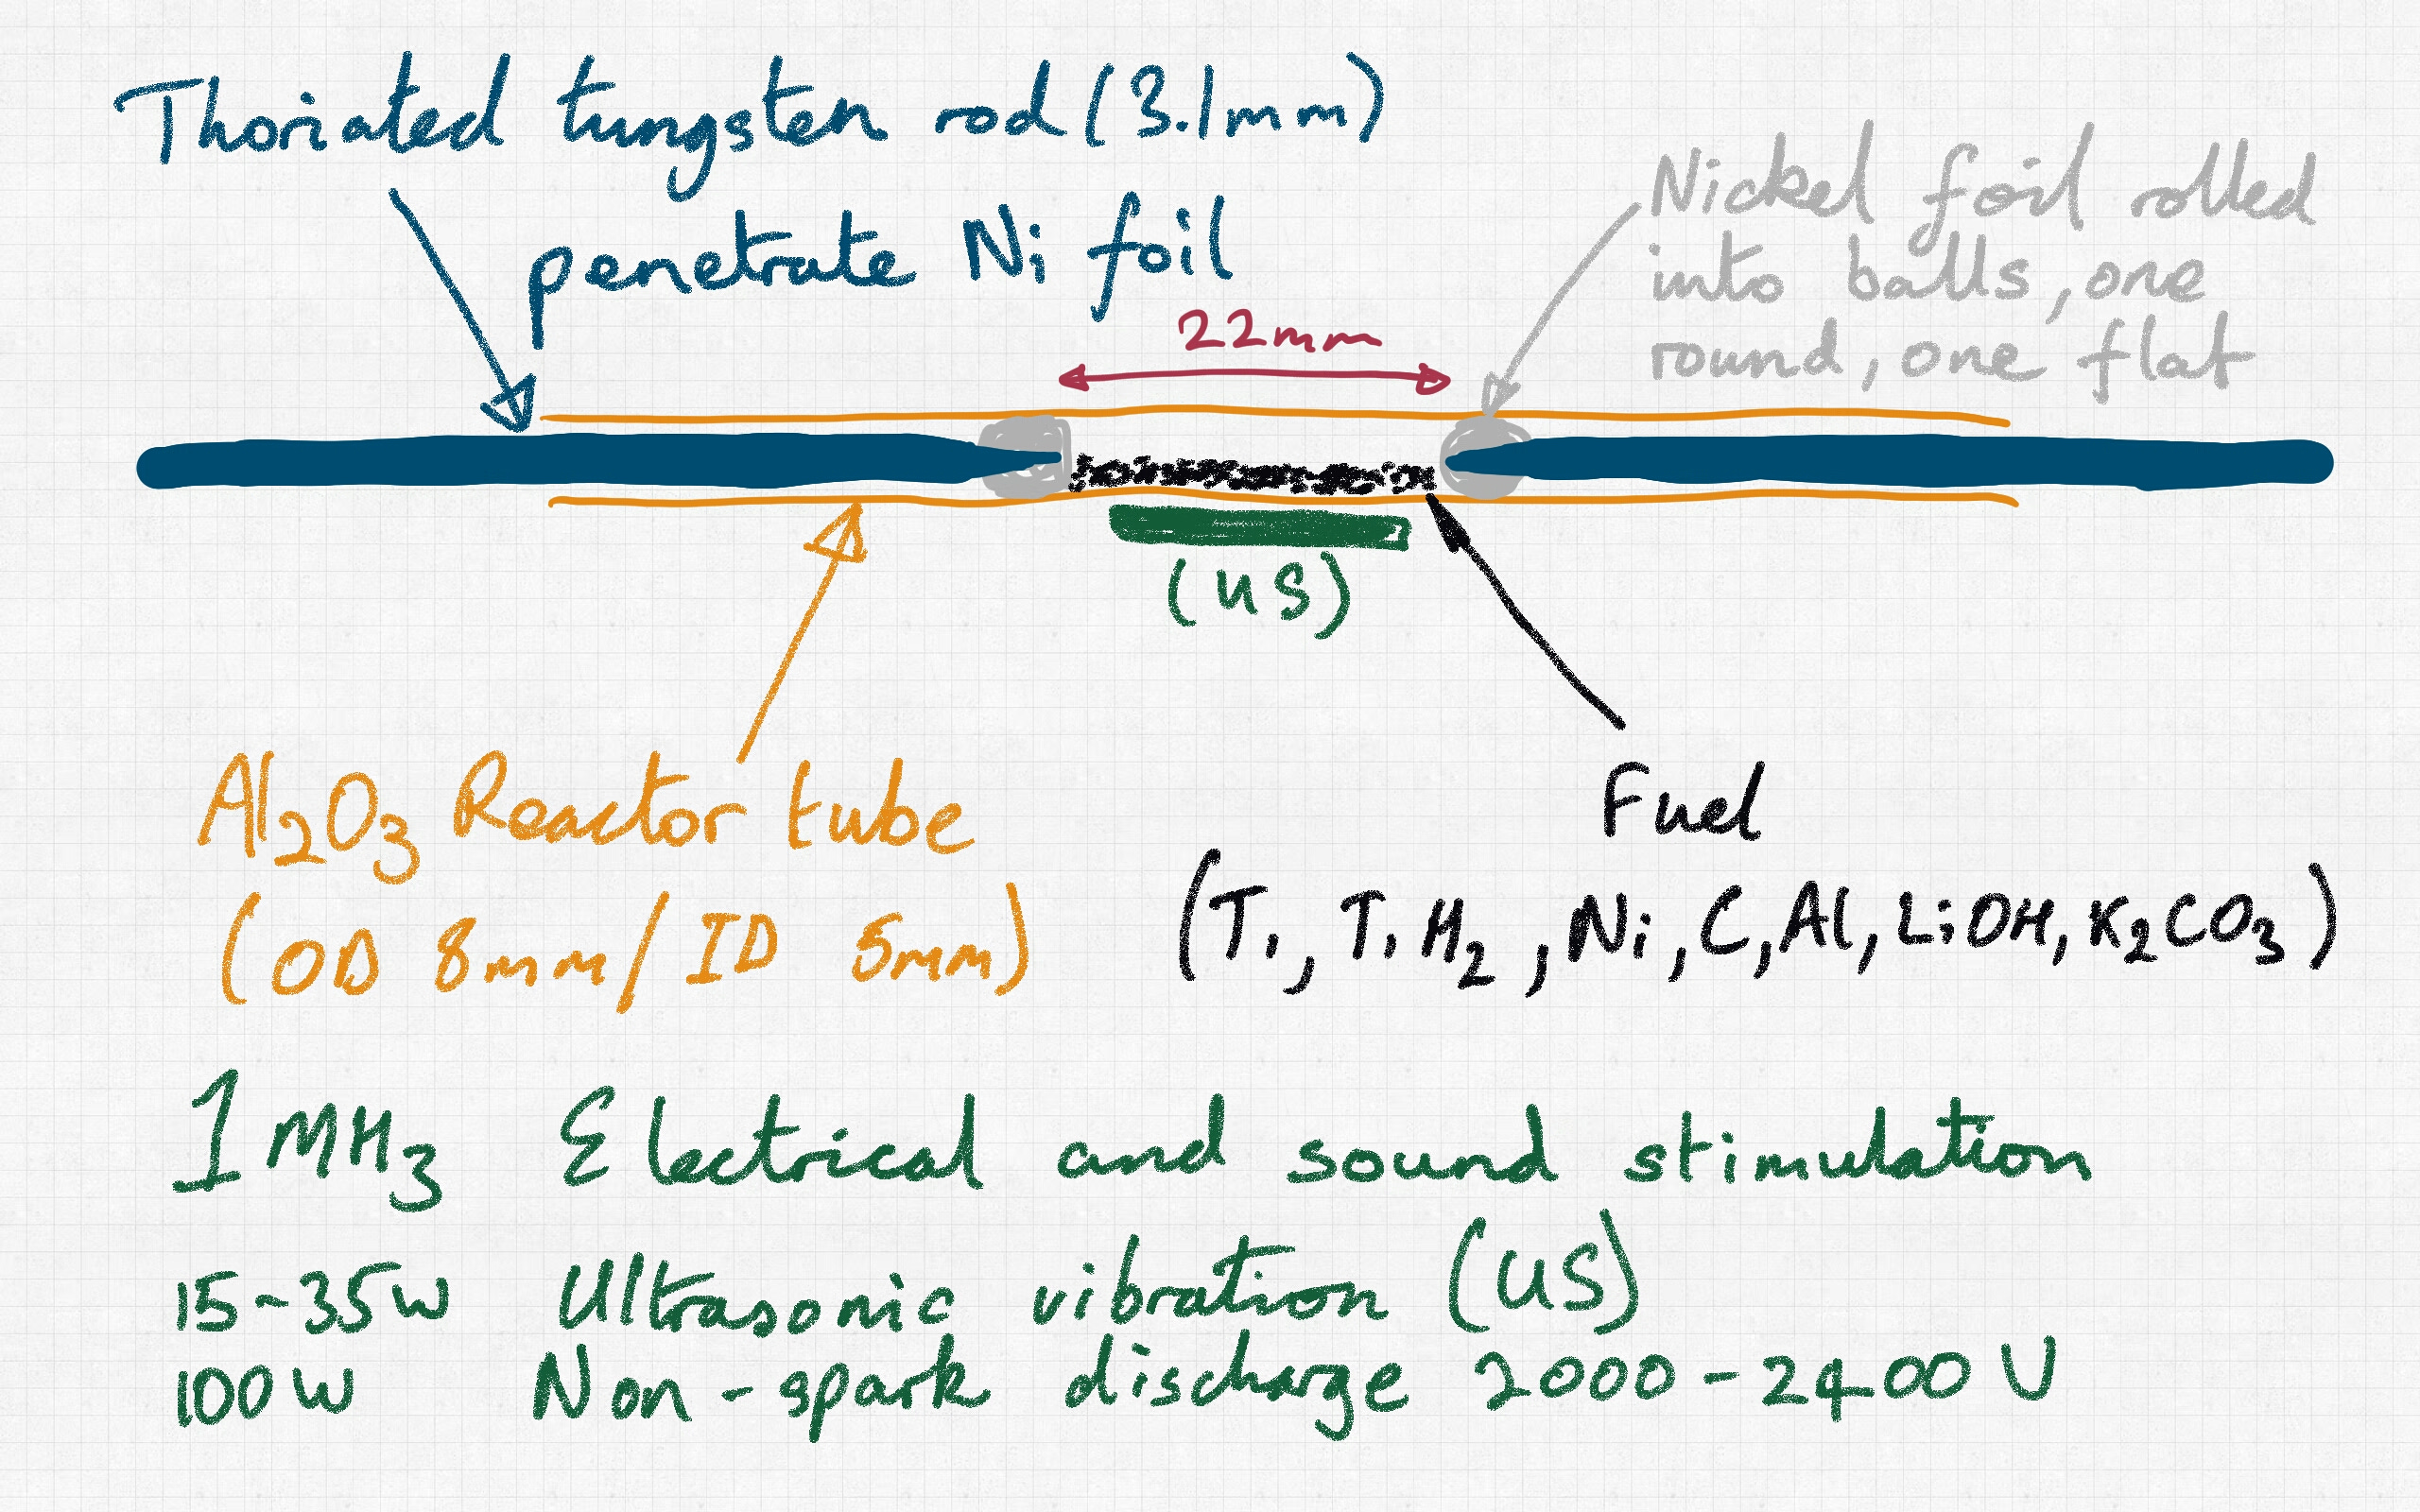 Thoriated tungsten rod (3.1mm)
penetrate Ni foil
Nickel foil rolled
into balls, one
round, one flat
22mm
(US)
Al2O3 Reactor tube
(OD 8mm/ID 5mm)
Fuel
(Ti, TiH2, Ni, C, Al, LiOH, K2CO3)
1MHz Electrical and sound stimulation
15-35W Ultrasonic vibration (US)
100W Non-spark discharge 2000-2400 V